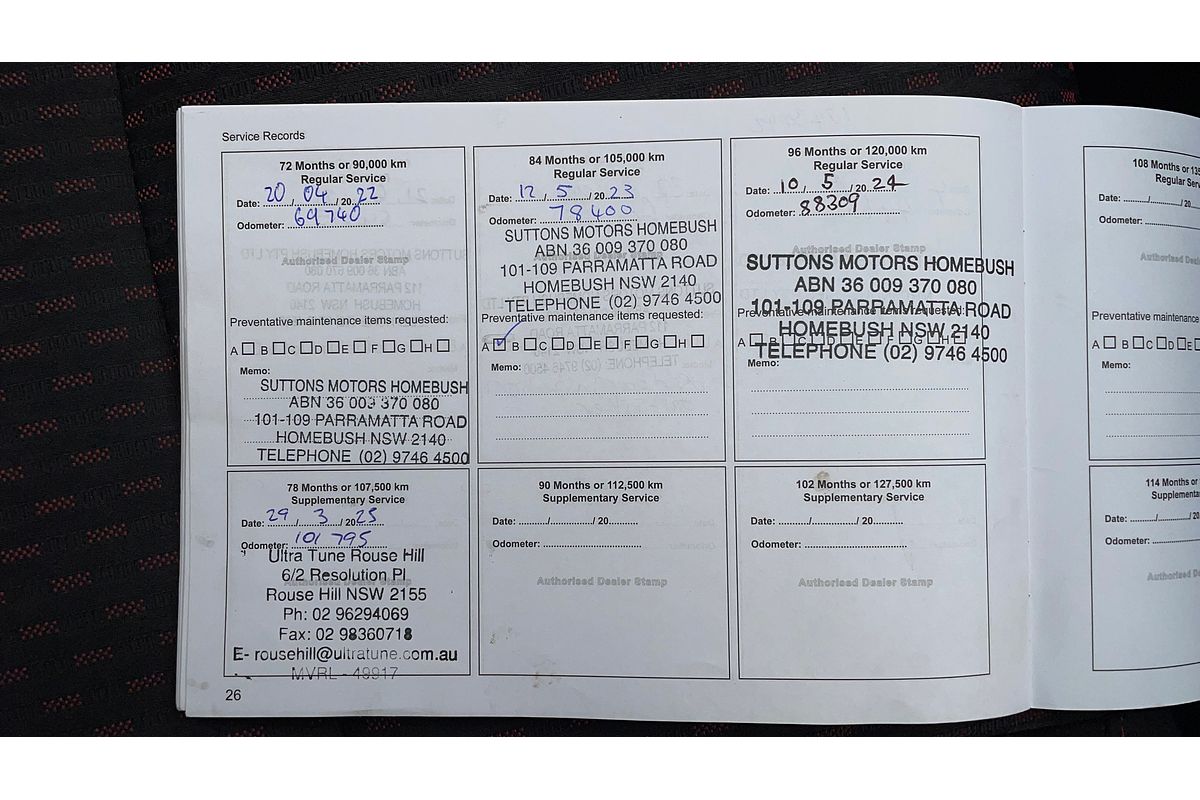 Service Records
72 Months or 90,000 km
Regular Service
Date: 20/04/2022
Odometer: 69740
Authorised Dealer Stamp
Preventative maintenance items requested:
A B C D E F G H
Memo:
SUTTONS MOTORS HOMEBUSH
ABN 36 009 370 080
101-109 PARRAMATTA ROAD
HOMEBUSH NSW 2140
TELEPHONE (02) 9746 4500
84 Months or 105,000 km
Regular Service
Date: 12/5/2023
Odometer: 78400
SUTTONS MOTORS HOMEBUSH
ABN 36 009 370 080
101-109 PARRAMATTA ROAD
HOMEBUSH NSW 2140
TELEPHONE (02) 9746 4500
Preventative maintenance items requested:
A B C D E F G H
Memo:
96 Months or 120,000 km
Regular Service
Date: 10/5/2024
Odometer: 88309
Authorised Dealer Stamp
SUTTONS MOTORS HOMEBUSH
ABN 36 009 370 080
101-109 PARRAMATTA ROAD
Preventative maintenance items requested:
HOMEBUSH NSW 2140
A B C D E F G H
TELEPHONE (02) 9746 4500
Memo:
78 Months or 107,500 km
Supplementary Service
Date: 29/3/2025
Odometer: 101 795
Ultra Tune Rouse Hill
6/2 Resolution Pl
Rouse Hill NSW 2155
Ph: 02 96294069
Fax: 02 98360718
E- rousehill@ultratune.com.au
MVRL - 49917
90 Months or 112,500 km
Supplementary Service
Date: ........./............../ 20..........
Odometer: ..................................
Authorised Dealer Stamp
102 Months or 127,500 km
Supplementary Service
Date: ........./............../ 20..........
Odometer: ..................................
Authorised Dealer Stamp
26
108 Months or
Regular
Date: ........./........../ 20
Odometer:
Authorised
Preventative maintenance
A B C D E
Memo:
114 Months or
Date: ........./........../ 20
Odometer:
Authorised